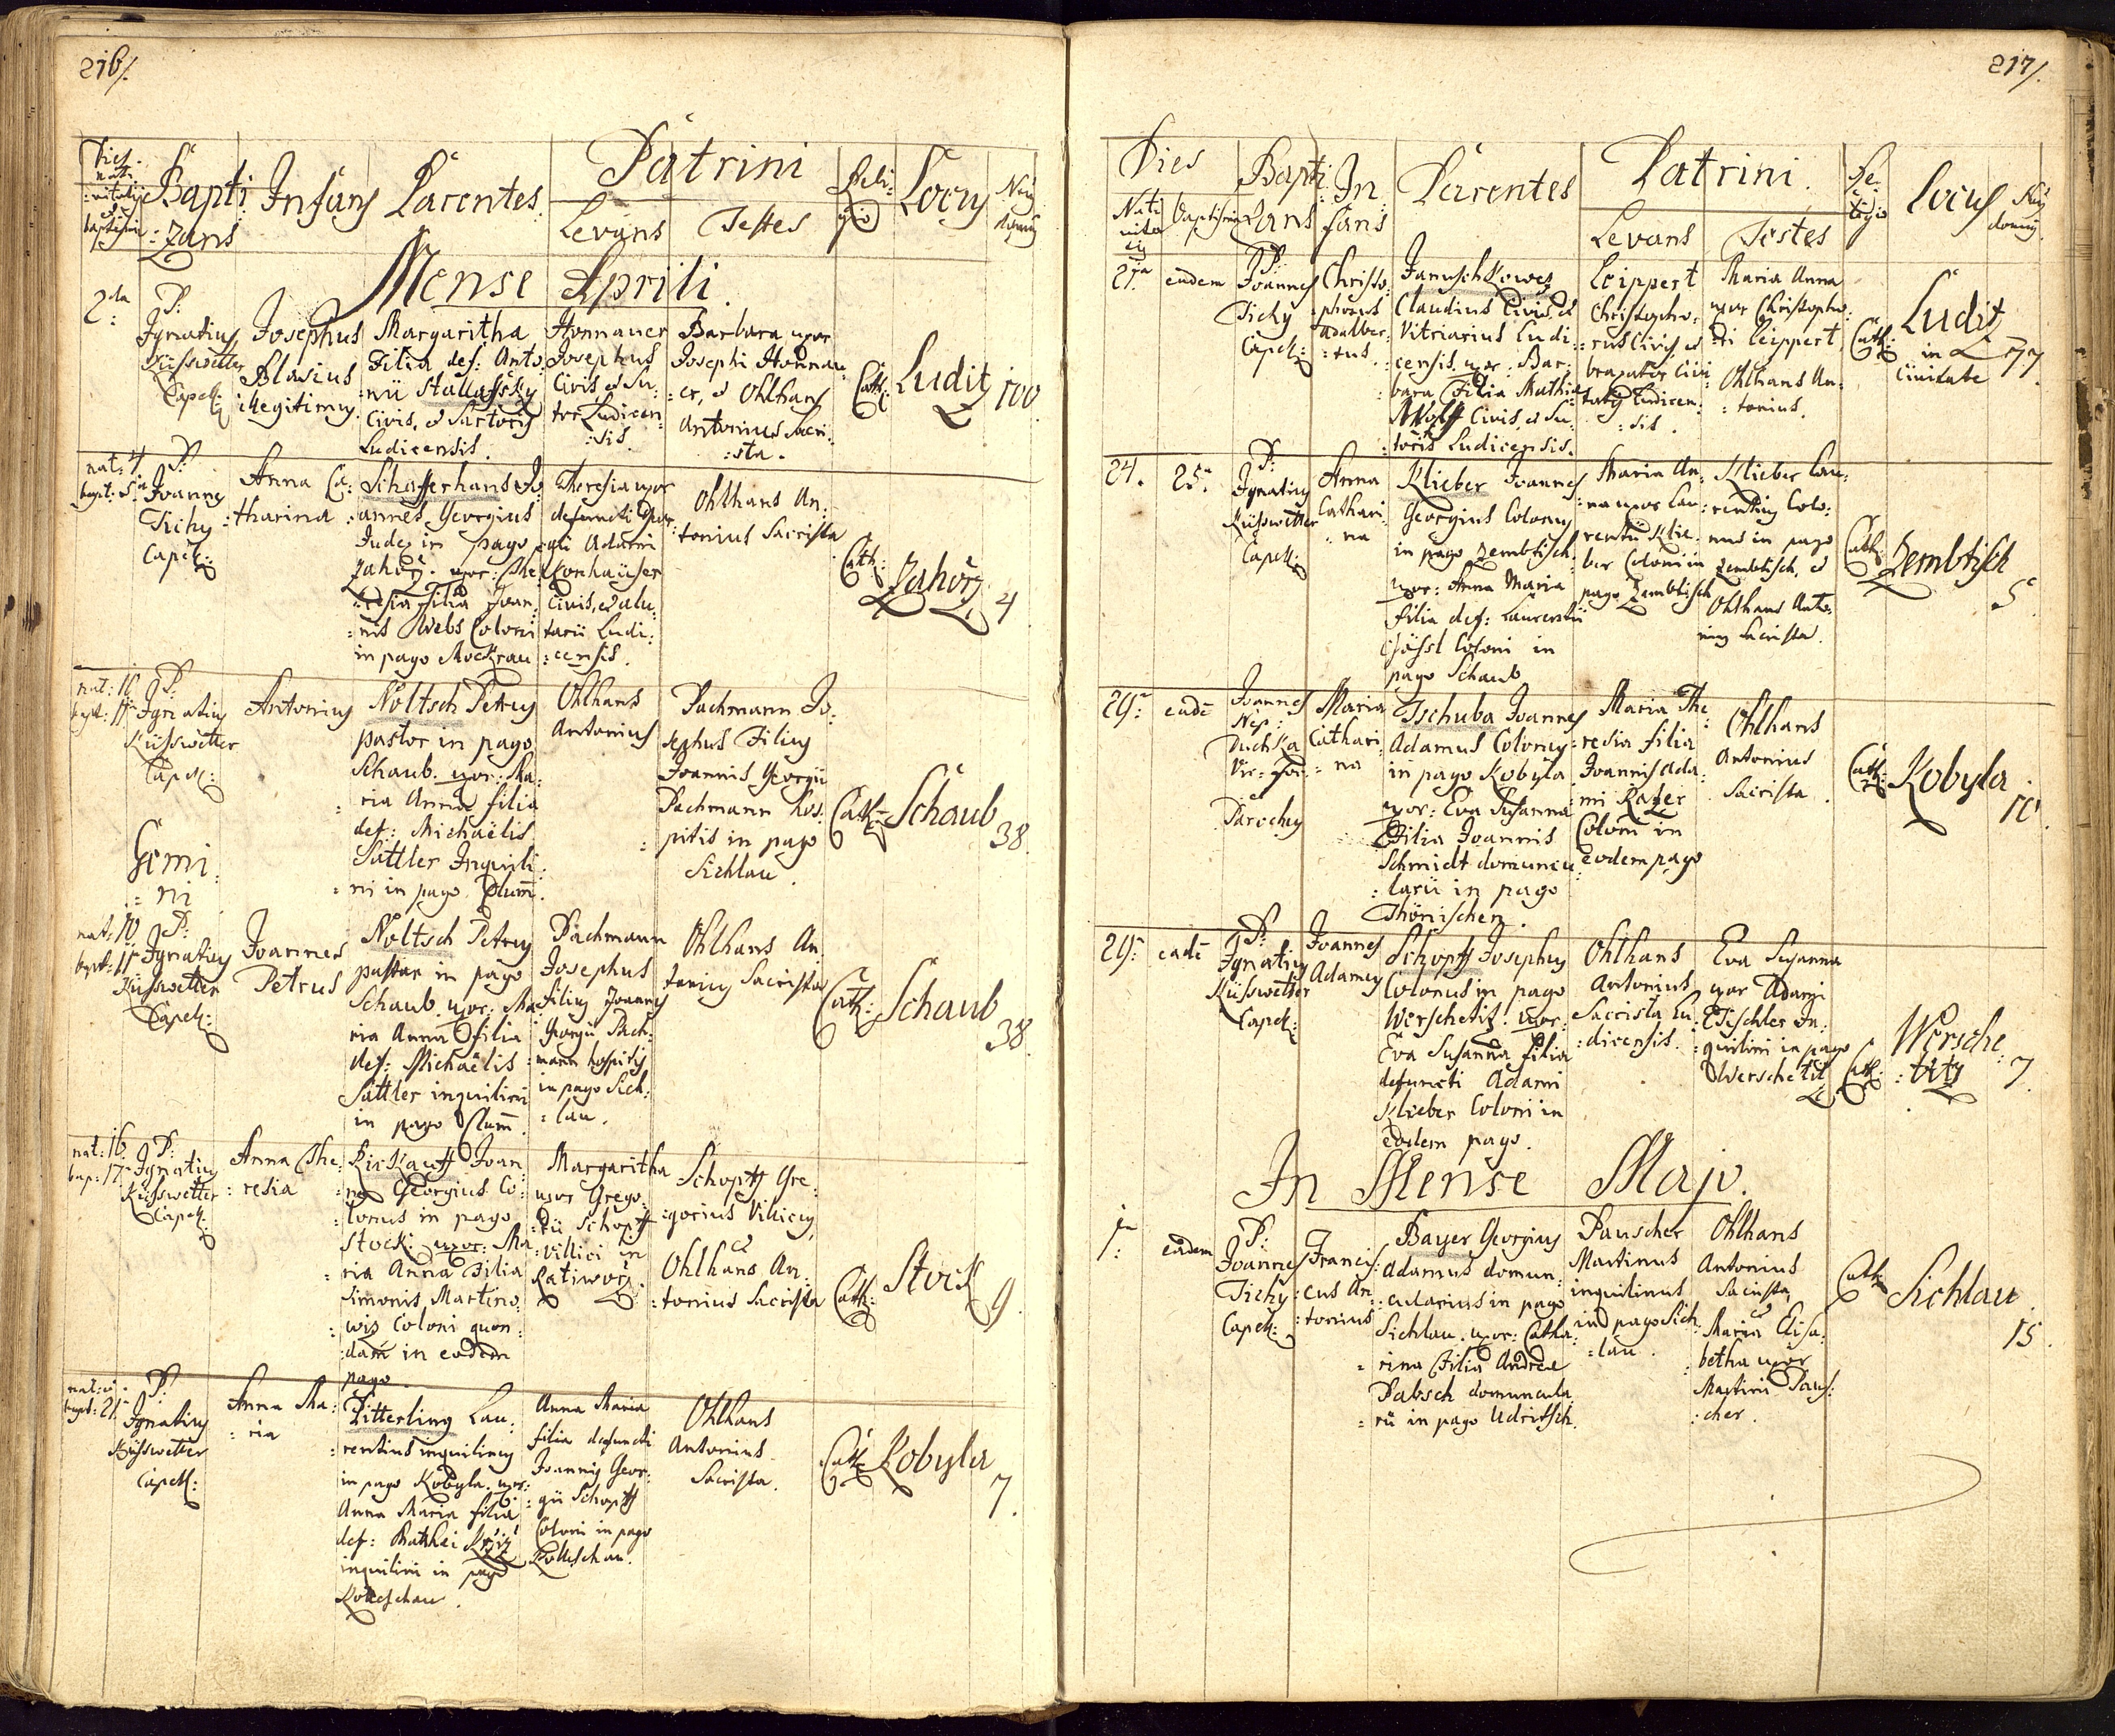 216/.
Dies
nati
:vitatis
et
baptismi
Bapti
:zans
Infans
Parentes
Patrini
Levans
Testes
Reli:
gio
Locus
Nrus
domus
Mense Aprili.
2da
P:
Ignatius
Küsswetter
Capell:
Josephus
Blasius
illegitimus.
Margaritha
Filia def: Anto:
:nii Stallafsky
Civis, et Sartoris
Ludicensis.
Honnauer
Josephus
Civis, et Su:
tor Ludicen
:sis.
Barbara uxor
Josephi Honnau
:er, et Ohlhans
Antonius Sacri:
:sta.
Cath:
Ludit
100
nat: 4.
bapt: 5ta
P:
Joannes
Tichy
Capell:
Anna Ca:
:tharina
Schafferhans Jo:
:annes Georgius
Judex in pago
Zahorz. uxor: The
:resia Filia Joan:
:nis Webs Coloni
in pago Mockrau
Theresia uxor
defuncti Geor
:gii Adami
Konhaüser
Civis, et alu:
tarii Ludi:
:censis.
Ohlhans An:
:tonius Sacrista
Cath:
Zahorz
4
nat: 10
bapt: 11
P:
Ignatius
Küsswetter
Capell:
Antonius
Noltsch Petrus
pastor in pago
Schaub. uxor: Ma:
:ria Anna filia
def: Michaëlis
Sattler Inquili:
:ni in pago Plum̄.
Ohlhans
Antonius
Pachmann Jo:
sephus Filius
Joannis Georgii
Pachmann hos:
:pitis in pago
Sichlau.
Cath:
Schaub
38.
Gemi
:ni
nat: 10
bapt: 11
P:
Ignatius
Küsswetter
Capell:
Joannes
Petrus
Noltsch Petrus
pastor in pago
Schaub. uxor: Ma:
ria Anna filia
def: Michaëlis
Sattler inquilini
in pago Plum̄.
Pachmann
Josephus
filius Joannis
Georgii Pach:
:mann hospitis
in pago Sich:
:lau.
Ohlhans An
tonius Sacrista
Cath:
Schaub
38.
nat: 16.
bap: 17
P:
Ignatius
Küsswetter
Capell:
Anna The:
:resia
Kirkauff Joan:
:nes Georgius Co:
:lonus in pago
Stock: uxor: Ma
:ria Anna Filia
Simonis Martino:
:wis Coloni quon:
:dam in eodem
pago.
Margaritha
uxor Grego:
:rii Schopff
Villici in
Ratiworz.
Schopff Gre:
:gorius Villicus,
et
Ohlhans An:
:tonius Sacrista
Cath:
Stock
9.
bapt: 21
P:
Ignatius
Küsswetter
Capell:
Anna Ma:
:ria
Pitterling Lau:
:rentius inquilinus
in pago Kobyla. uxor:
Anna Maria filia
def: Mathei
inquilini in pago
Kolleschau.
Anna Maria
filia defuncti
Joannis Geor:
:gii Schopff
Coloni in pago
Kolleschau.
Ohlhans
Antonius
Sacrista.
Cath:
Kobyla
7.
217/.
Dies
Nati
vita
tis
Baptismi
Bapti
zans
In
fans
Parentes
Patrini.
Levans
Testes
Re
ligio
Locus
Nrus
domus.
21ma
eadem
P:
Joannes
Tichy
Capell:
Christo:
:phorus
Adalber:
:tus.
Januschkowez
Claudius Civis, et
Vitriarius Ludi:
:censis, uxor: Bar:
:bara Filia Mathiæ
Wolff Civis, et Su:
:toris Ludicensis.
Leippert
Christopho:
:rus Civis, et
braxator Civi
tatis Ludicen:
:sis.
Maria Anna
uxor Christopho:
:ri Leippert,
et
Ohlhans An:
:tonius.
Cath:
Ludit
in
Civitate
77
24.
25.
P:
Ignatius
Küsswetter
Capell:
Anna
Cathari:
:na
Klieber Joannes
Georgius Colonus
in pago Zembtisch.
uxor: Anna Maria
filia def: Laurentii
Gössl Coloni in
pago Schaub
Maria An:
:na uxor Lau:
rentii Klie:
ber Coloni in
pago Zembtisch
Klieber Lau:
:rentius Colo:
nus in pago
Zembtisch, et
Ohlhans Anto:
nius Sacrista.
Cath:
Zembtisch
5.
29:
eadē
Joannes
Nep:
Duchka
Vic: for:
et
Parochus
Maria
Cathari:
:na
Tschuba Joannes
Adamus Colonus
in pago Kobyla
uxor: Eva Susanna
Filia Joannis
Schmidt domuncu:
:larii in pago
Thönischen.
Maria The:
:resia filia
Joannis Ada:
:mi Rater
Coloni in
eodem pago
Ohlhans
Antonius
Sacrista.
Cath:
Kobyla.
10.
29:
eadē
P:
Ignatius
Küsswetter
Capell:
Joannes
Adamus
Schopff Josephus
Colonus in pago
Werschetitz. uxor:
Eva Susanna filia
defuncti Adami
Klieber Coloni in
eodem pago.
Ohlhans
Antonius
Sacrista Lu:
:dicensis.
Eva Susanna
uxor Adami
Tischler In:
:quilini in pago
Werschetit
Cath:
Wersche:
:titz
7.
In Mense Majo.
1ma
eadem
P:
Joannes
Tichy
Capell:
Francis:
:cus An:
:tonius
Bayer Georgius
Adamus domun:
:cularius in pago
Sichlau. uxor: Catha:
:rina Filia Andreæ
Pabsch domuncula:
:rii in pago Udritsch.
Pauscher
Martinus
inquilinus
in pago Sich:
:lau.
Ohlhans
Antonius
Sacrista,
et
Maria Elisa:
:betha uxor
Martini Paus:
:cher.
Cath:
Sichlau.
15.